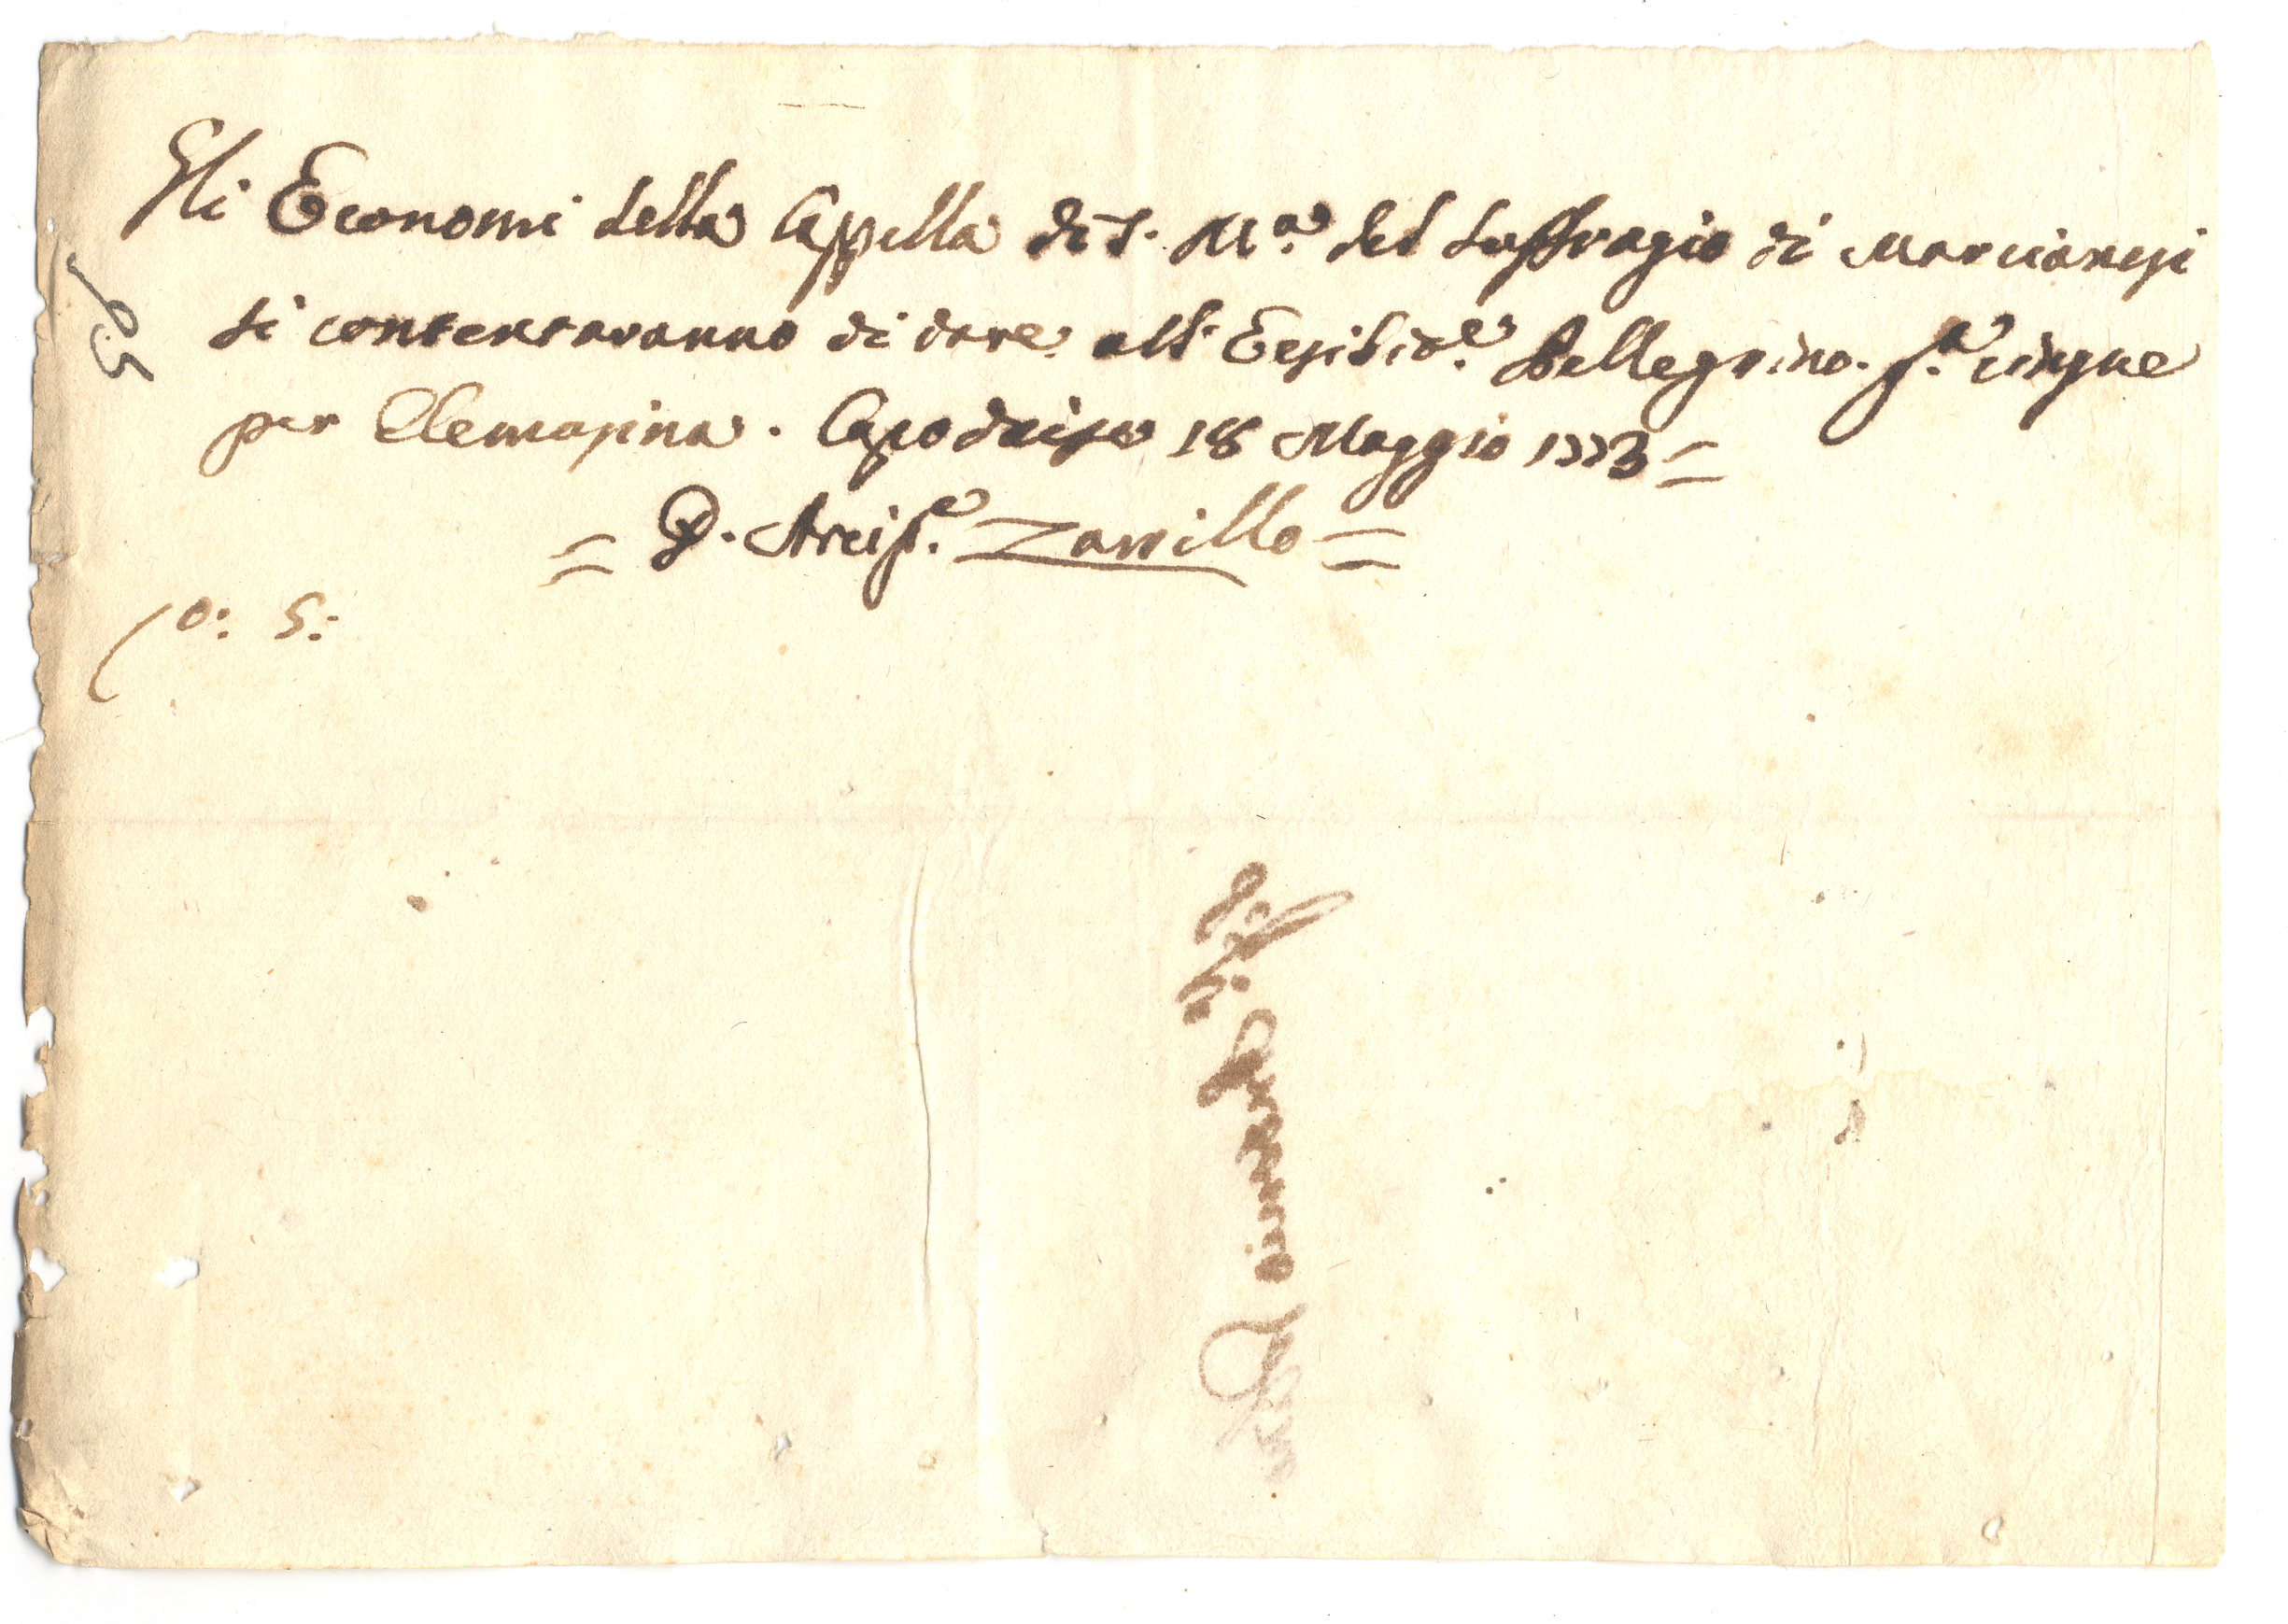 Gli Economi della Cappella di S. M.ª del Suffragio di Marcianesi
si contentaranno di dare all' Esibid.e Pellegrino. g.ª cinque
per Elemosina. Capodrise 18 Maggio 1773=
= D. Arcip.e Zarrillo =
0: 5: